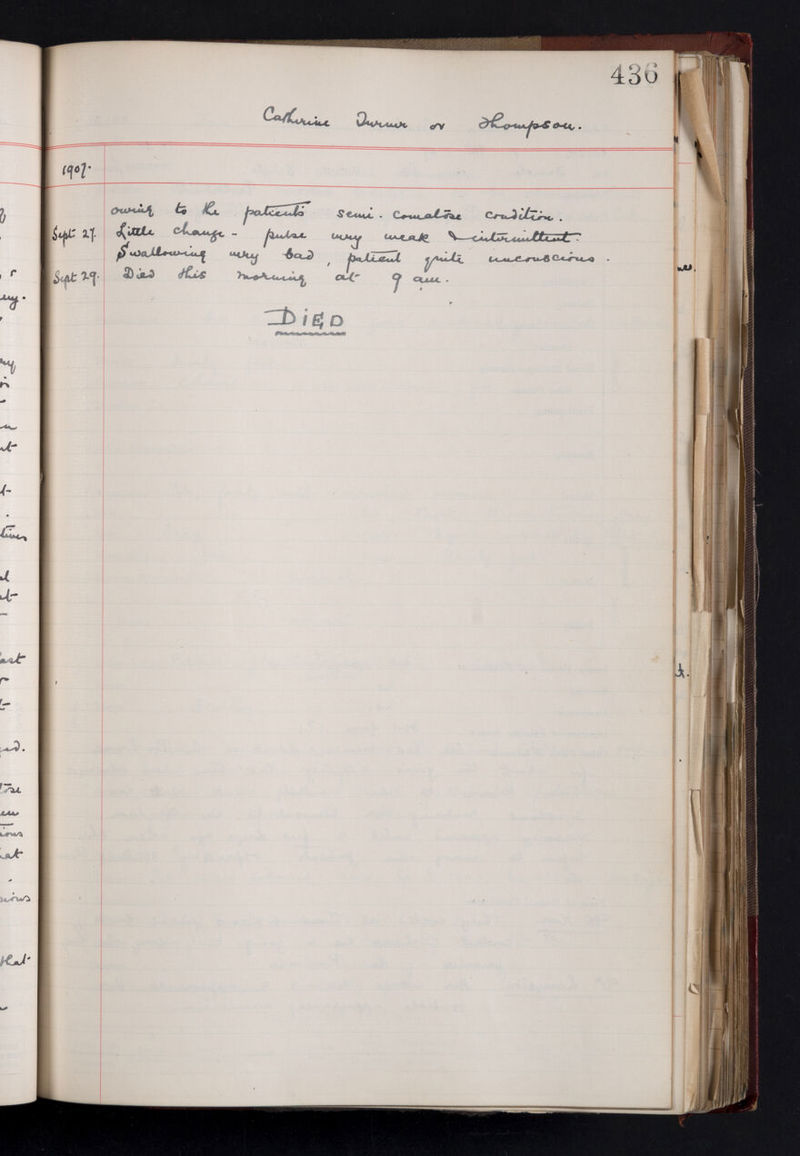 436
Catherine Turner or Thompson.
1907.
owing to the patients semi-comatose condition.
Sept 27. Little change - pulse very weak & intermittent.
Swallowing very bad, patient quite unconscious.
Sept 29. Died this morning at 9 am.
DIED